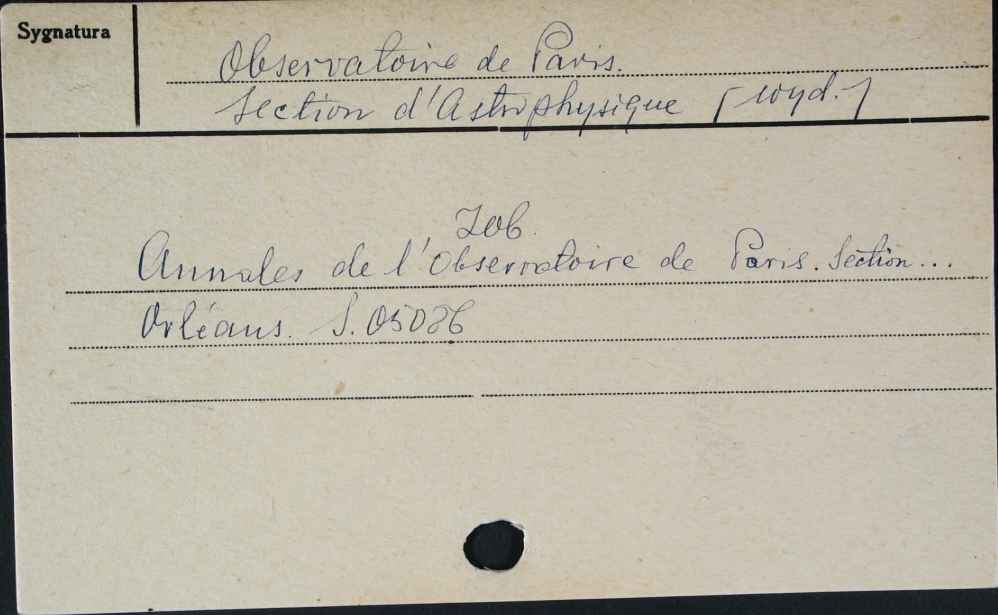 Sygnatura
Observatoire de Paris.
Section d'Astrophysique [wyd.]
Zob.
Annales de l'Observatoire de Paris. Section...
Orléans. S. 05086